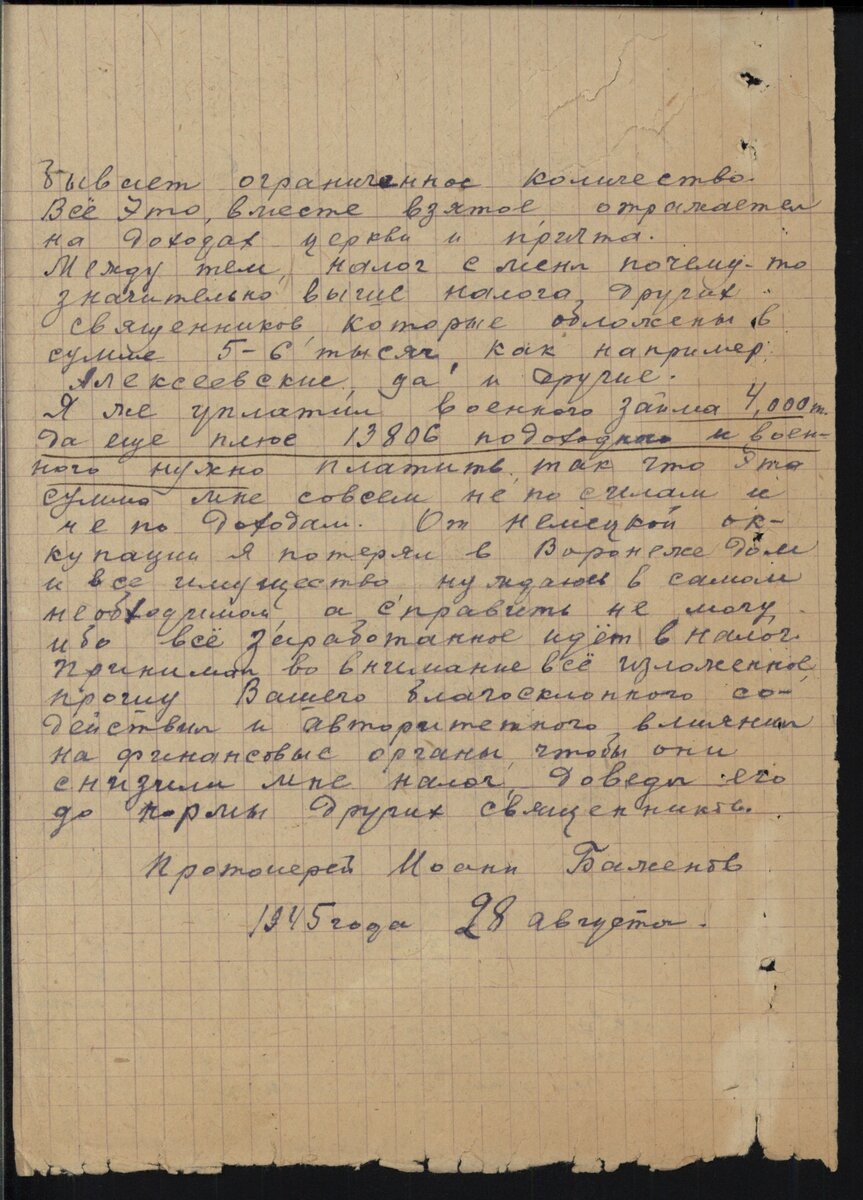 бывает ограниченное количество.
Всё это, вместе взятое, отражается
на доходах церкви и причта.
Между тем, налог с меня почему-то
значительно выше налога других
священников, которые обложены в
сумме 5-6 тысяч, как например,
Алексеевские, да и другие.
Я же уплатил военного займа 4,000 т.
да еще плюс 13806 подоходного и воен-
ного нужно платить, так что эта
сумма мне совсем не по силам и
не по доходам. От немецкой ок-
купации я потерял в Воронеже дом
и все имущество нуждаюсь в самом
необходимом, а справить не могу
ибо всё заработанное идёт в налог.
Принимая во внимание всё изложенное,
прошу Вашего благосклонного со-
действия и авторитетного влияния
на финансовые органы, чтобы они
снизили мне налог, доведя его
до нормы других священников.
Протоиерей Иоанн Баженов
1945 года 28 августа.